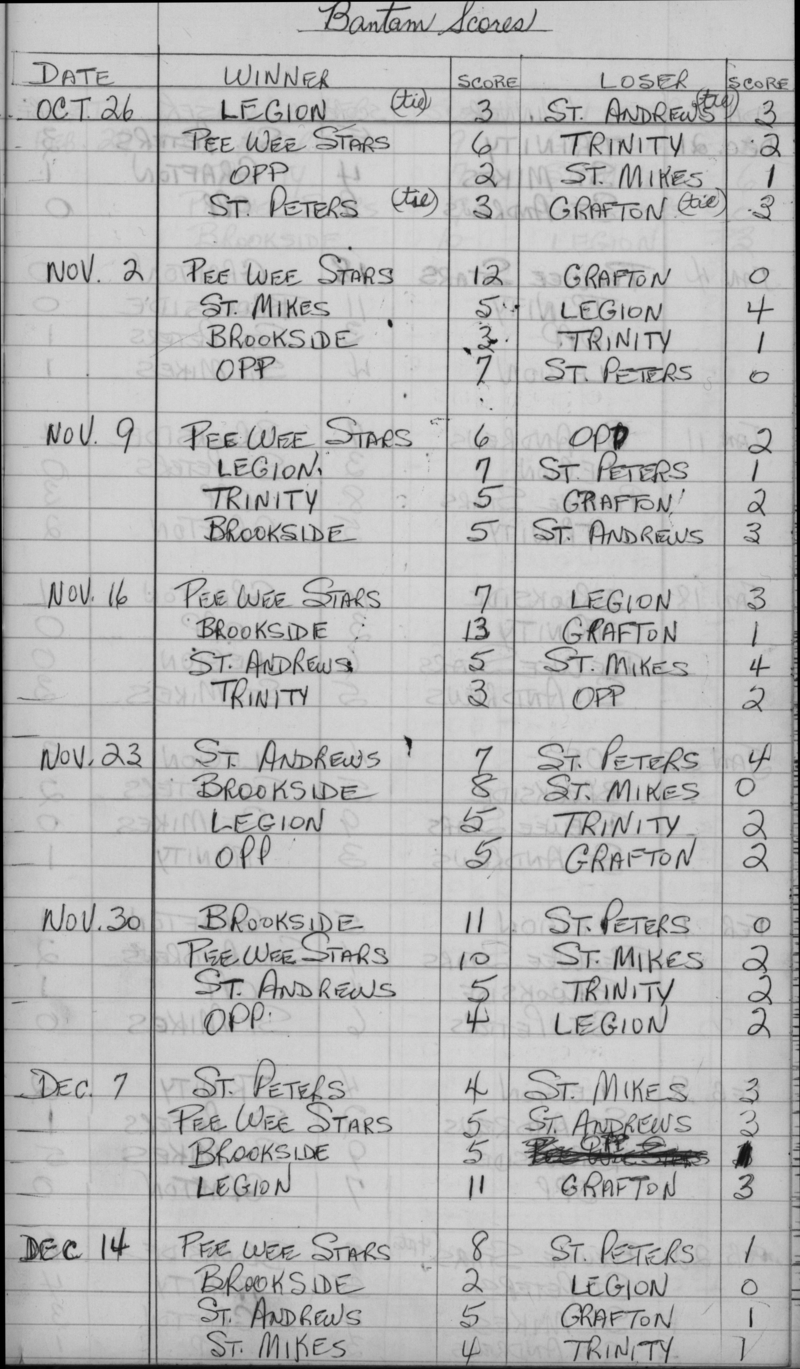 Bantam Scores
DATE WINNER SCORE LOSER SCORE
OCT. 26 LEGION (tie) 3 ST. ANDREWS (tie) 3
PEE WEE STARS 6 TRINITY 2
OPP 2 ST. MIKES 1
ST. PETERS (tie) 3 GRAFTON (tie) 3
NOV. 2 PEE WEE STARS 12 GRAFTON 0
ST. MIKES 5 LEGION 4
BROOKSIDE 3 TRINITY 1
OPP 7 ST. PETERS 0
NOV. 9 PEE WEE STARS 6 OPP 2
LEGION 7 ST. PETERS 1
TRINITY 5 GRAFTON 2
BROOKSIDE 5 ST. ANDREWS 3
NOV. 16 PEE WEE STARS 7 LEGION 3
BROOKSIDE 13 GRAFTON 1
ST. ANDREWS 5 ST. MIKES 4
TRINITY 3 OPP 2
NOV. 23 ST. ANDREWS 7 ST. PETERS 4
BROOKSIDE 8 ST. MIKES 0
LEGION 5 TRINITY 2
OPP 5 GRAFTON 2
NOV. 30 BROOKSIDE 11 ST. PETERS 0
PEE WEE STARS 10 ST. MIKES 2
ST. ANDREWS 5 TRINITY 2
OPP 4 LEGION 2
DEC. 7 ST. PETERS 4 ST. MIKES 3
PEE WEE STARS 5 ST. ANDREWS 3
BROOKSIDE 5 OPP 1
LEGION 11 GRAFTON 3
DEC 14 PEE WEE STARS 8 ST. PETERS 1
BROOKSIDE 2 LEGION 0
ST. ANDREWS 5 GRAFTON 1
ST. MIKES 4 TRINITY 1